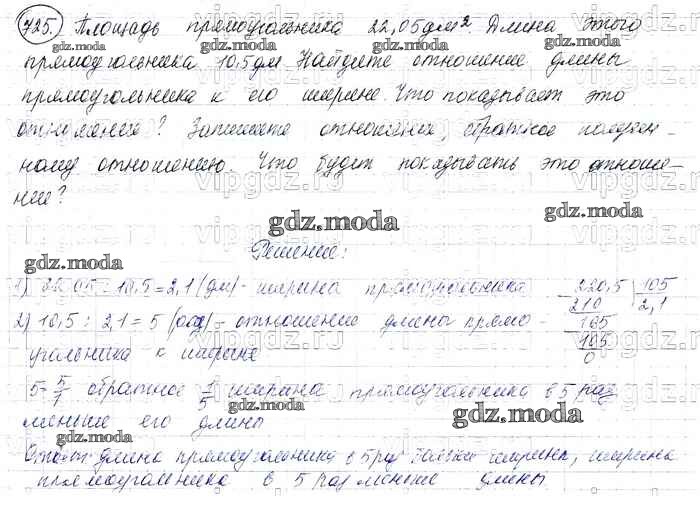 725. Площадь прямоугольника 22,05 дм². Длина этого
прямоугольника 10,5 дм. Найдите отношение длины
прямоугольника к его ширине. Что показывает это
отношение? Запишите отношение, обратное получен-
ному отношению. Что будет показывать это отноше-
ние?
Решение:
1) 22,05 : 10,5 = 2,1 (дм) - ширина прямоугольника
2) 10,5 : 2,1 = 5 (раз) - отношение длины прямо-
угольника к ширине
220,5 | 105
210 2,1
105
105
0
5 = 5/1 обратное 1/5 ширина прямоугольника в 5 раз
меньше его длины
Ответ: длина прямоугольника в 5 раз ширины, ширина
прямоугольника в 5 раз меньше длины
gdz.moda
vipgdz.ru